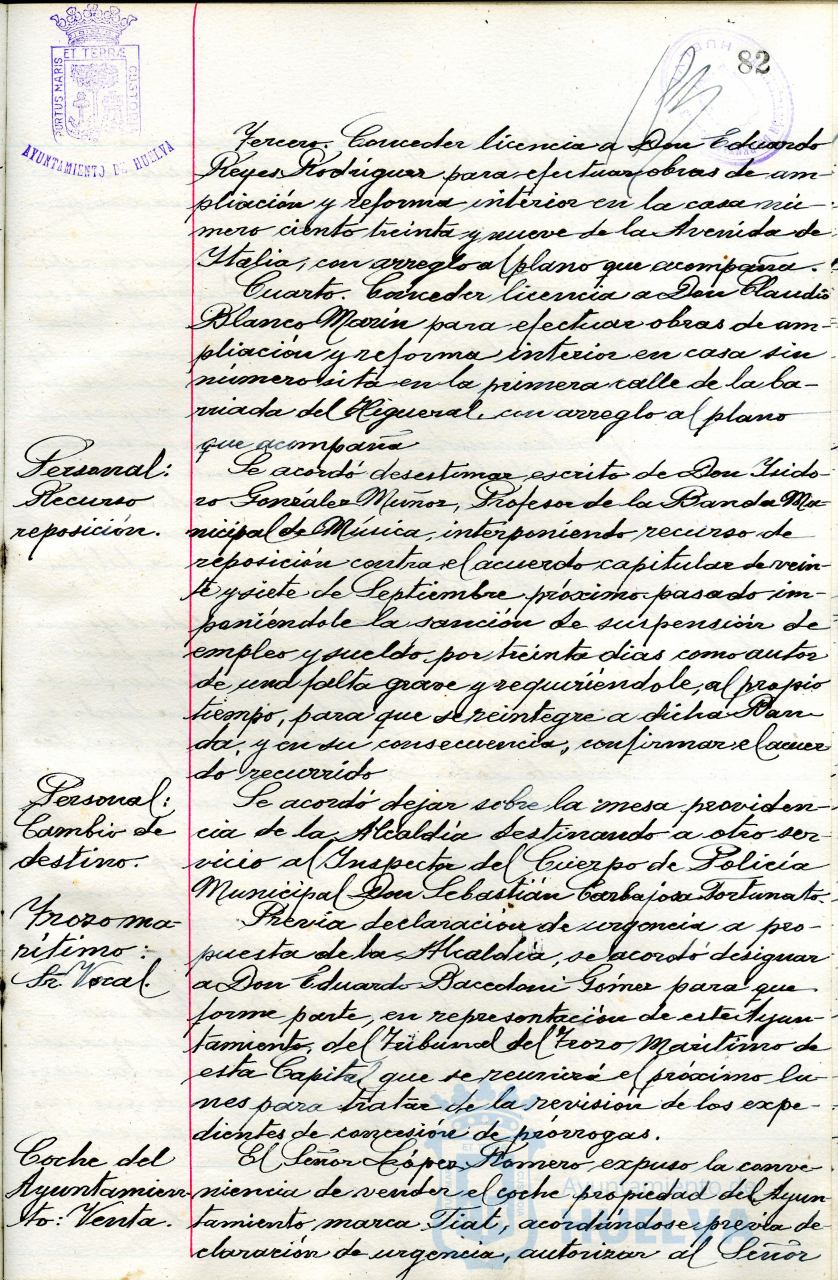 PORTUS MARIS ET TERRÆ CUSTODIA
AYUNTAMIENTO DE HUELVA
82
Tercero. Conceder licencia a Don Eduardo
Reyes Rodríguez para efectuar obras de am-
pliación y reforma interior en la casa nú-
mero ciento treinta y nueve de la Avenida de
Italia, con arreglo al plano que acompaña.
Cuarto. Conceder licencia a Don Claudio
Blanco Marín para efectuar obras de am-
pliación y reforma interior en casa sin
número sita en la primera calle de la ba-
rriada del Higueral, con arreglo al plano
que acompaña
Personal:
Recurso
reposición.
Se acordó desestimar escrito de Don Isido-
ro González Muñoz, Profesor de la Banda Mu-
nicipal de Música, interponiendo recurso de
reposición contra el acuerdo capitular de vein-
te y siete de Septiembre próximo pasado im-
poniéndole la sanción de suspensión de
empleo y sueldo por treinta dias como autor
de una falta grave y requiriéndole, al propio
tiempo, para que se reintegre a dicha Ban-
da, y en su consecuencia, confirmar el acuer
do recurrido
Personal:
Cambio de
destino.
Se acordó dejar sobre la mesa providen-
cia de la Alcaldía destinando a otro ser-
vicio al Inspector del Cuerpo de Policía
Municipal Don Sebastián Carbajosa Fortunato.
Trozo ma-
rítimo:
Sr. Vocal.
Previa declaración de urgencia a pro-
puesta de la Alcaldía, se acordó designar
a Don Eduardo Gómez para que
forme parte, en representación de este Ayun-
tamiento, del Tribunal del Trozo Marítimo de
esta Capital que se reunirá el próximo lu-
nes para tratar de la revisión de los expe-
dientes de concesión de prórrogas.
Coche del
Ayuntamien-
to: Venta.
El Señor López Romero, expuso la conve-
niencia de vender el coche propiedad del Ayun-
tamiento marca Fiat, acordándose previa de-
claración de urgencia, autorizar al Señor
Ayuntamiento de
HUELVA